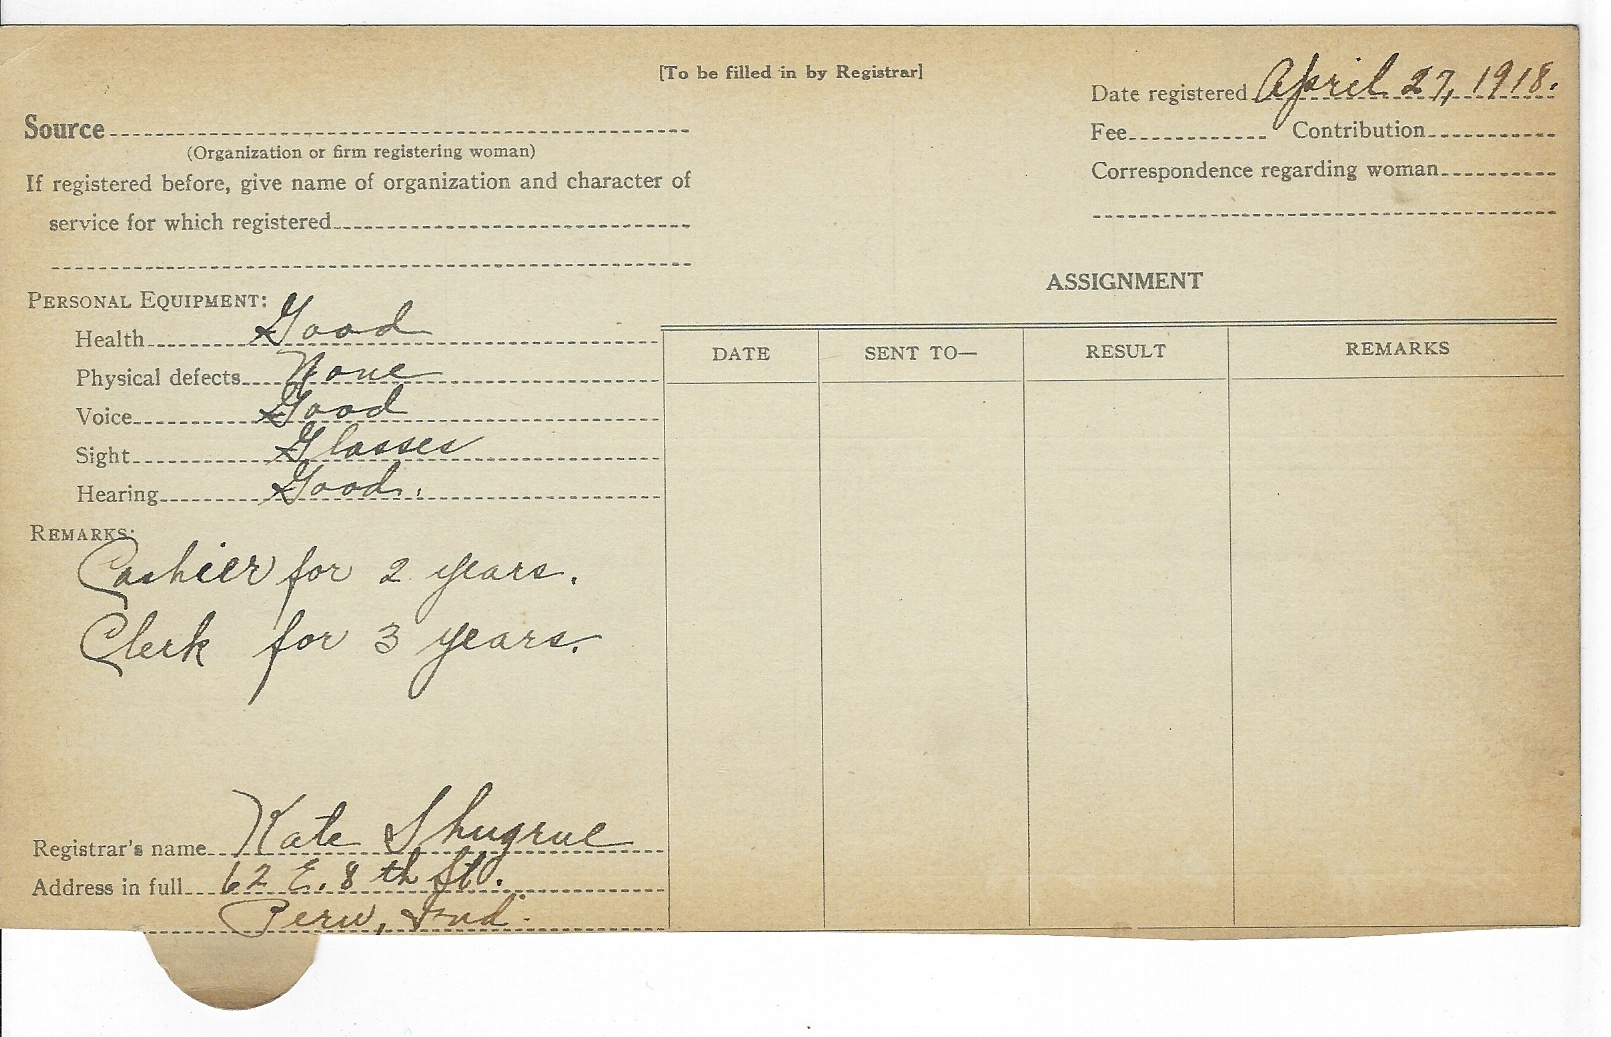 [To be filled in by Registrar]
Date registered April 27, 1918.
Source
(Organization or firm registering woman)
Fee Contribution
If registered before, give name of organization and character of
service for which registered
Correspondence regarding woman
PERSONAL EQUIPMENT:
Health Good
Physical defects None
Voice Good
Sight Glasses
Hearing Good.
REMARKS:
Cashier for 2 years.
Clerk for 3 years.
Registrar's name Kate Shugrue
Address in full 62 E. 8th St.
Peru, Ind.
ASSIGNMENT
DATE SENT TO— RESULT REMARKS